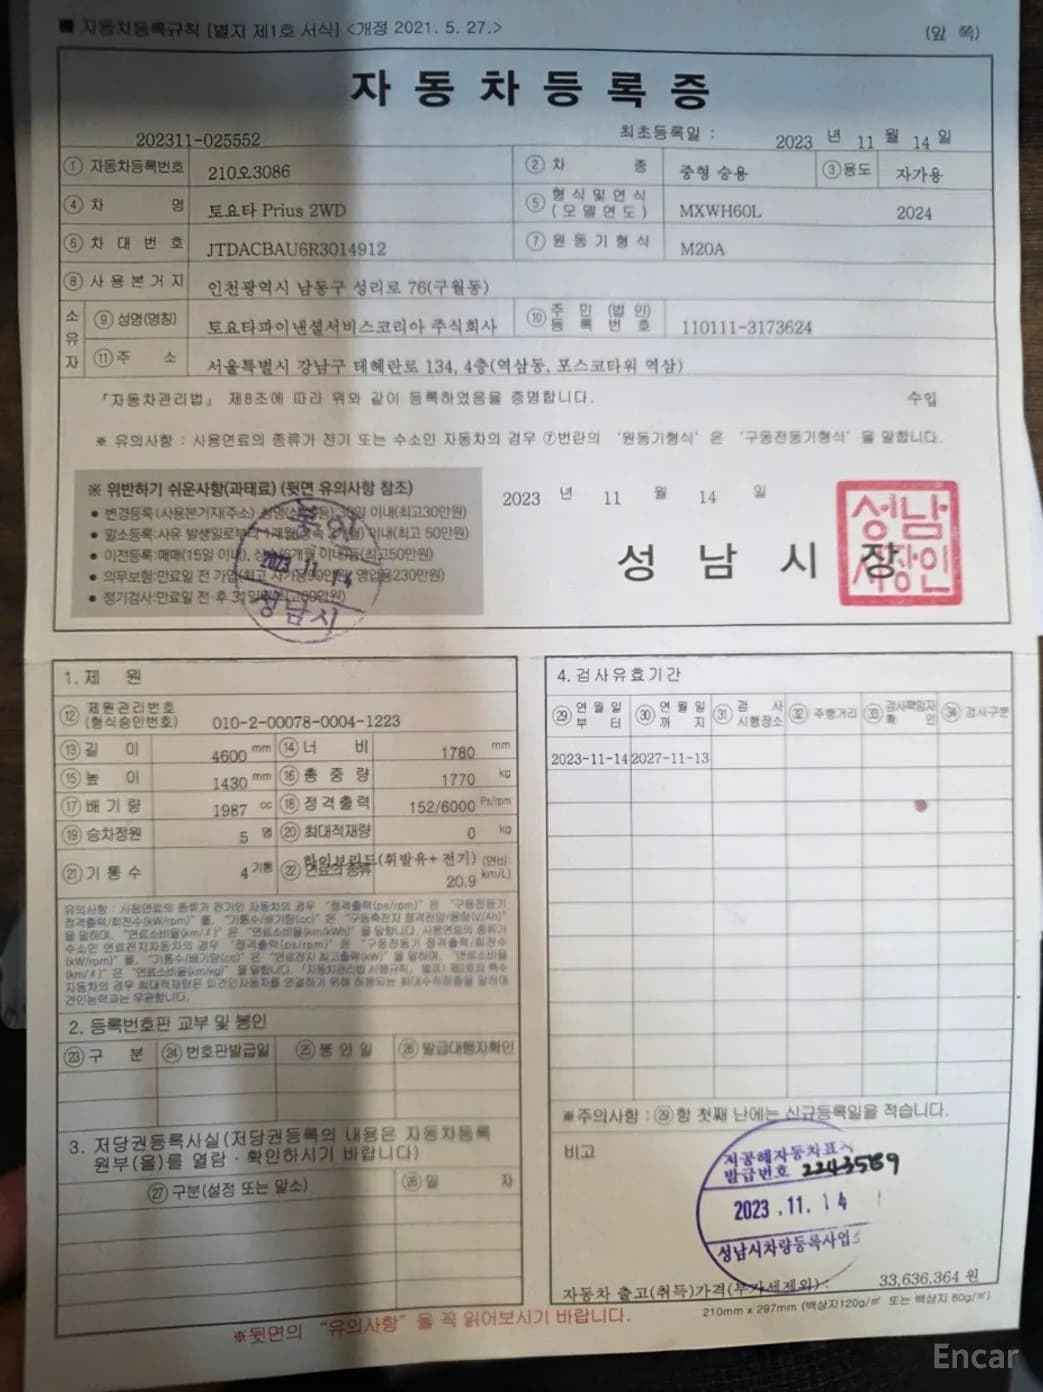 ■ 자동차등록규칙 [별지 제1호 서식] <개정 2021. 5. 27.>
(앞 쪽)
자동차등록증
202311-025552
최초등록일 : 2023 년 11 월 14 일
① 자동차등록번호 210오3086 ② 차 종 중형 승용 ③ 용도 자가용
④ 차 명 토요타 Prius 2WD ⑤ 형식 및 연식 (모델연도) MXWH60L 2024
⑥ 차대번호 JTDACBAU6R3014912 ⑦ 원동기형식 M20A
⑧ 사용본거지 인천광역시 남동구 성리로 76(구월동)
소유자 ⑨ 성명(명칭) 토요타파이낸셜서비스코리아 주식회사 ⑩ 주민(법인)등록번호 110111-3173624
⑪ 주 소 서울특별시 강남구 테헤란로 134, 4층(역삼동, 포스코타워 역삼)
「자동차관리법」 제8조에 따라 위와 같이 등록하였음을 증명합니다.
수입
※ 유의사항 : 사용연료의 종류가 전기 또는 수소인 자동차의 경우 ⑦번란의 '원동기형식' 은 '구동전동기형식' 을 말합니다.
※ 위반하기 쉬운사항(과태료) (뒷면 유의사항 참조)
• 변경등록(사용본거지(주소) 30일 이내(최고30만원)
• 말소등록:사유 발생일로부터 1개월 이내(최고 50만원)
• 이전등록:매매(15일 이내), 상속(6개월 이내)등(최고50만원)
• 의무보험:만료일 전 가입(최고 자가용90만원, 영업용230만원)
• 정기검사:만료일 전·후 31일
2023. 11. 14
성남시
2023 년 11 월 14 일
성남시장
성남
시장인
1. 제 원
⑫ 제원관리번호 (형식승인번호) 010-2-00078-0004-1223
⑬ 길 이 4600 mm ⑭ 너 비 1780 mm
⑮ 높 이 1430 mm ⑯ 총 중 량 1770 kg
⑰ 배 기 량 1987 cc ⑱ 정격출력 152/6000 Ps/rpm
⑲ 승차정원 5 명 ⑳ 최대적재량 0 kg
㉑ 기 통 수 4 기통 ㉒ 연료의 종류 하이브리드(휘발유+전기) (연비: 20.9 km/L)
유의사항 : 사용연료의 종류가 전기인 자동차의 경우 "정격출력(ps/rpm)" 은 "구동전동기
정격출력/회전수(kW/rpm)" 를, "기통수/배기량(cc)" 은 "구동축전지 정격전압/용량(V/Ah)"
을 말하며, "연료소비율(km/ℓ)" 은 "연료소비율(km/kWh)" 을 말합니다. 사용연료의 종류가
수소인 연료전지자동차의 경우 "정격출력(ps/rpm)" 은 "구동전동기 정격출력/회전수
(kW/rpm)" 를, "기통수/배기량(cc)" 은 "연료전지 최고출력(kW)" 을 말하며, "연료소비율
(km/ℓ)" 은 "연료소비율(km/kg)" 을 말합니다. 「자동차관리법 시행규칙」 별표1 제2호의 특수
자동차의 경우 최대적재량은 피견인자동차를 연결하기 위해 허용되는 최대수직하중을 말하며
견인능력과는 무관합니다.
2. 등록번호판 교부 및 봉인
㉓ 구 분 ㉔ 번호판발급일 ㉕ 봉 인 일 ㉖ 발급대행자확인
3. 저당권등록사실(저당권등록의 내용은 자동차등록
원부(을)를 열람·확인하시기 바랍니다)
㉗ 구분(설정 또는 말소) ㉘ 일 자
4. 검사유효기간
㉙ 연월일부터 ㉚ 연월일까지 ㉛ 검사시행장소 ㉜ 주행거리 ㉝ 검사책임자확인 ㉞ 검사구분
2023-11-14 2027-11-13
※주의사항 : ㉙항 첫째 난에는 신규등록일을 적습니다.
비고
저공해자동차표지
발급번호 2243589
2023 .11. 14
성남시차량등록사업소
자동차 출고(취득)가격(부가세제외) : 33,636,364 원
210mm x 297mm (백상지120g/㎡ 또는 백상지 80g/㎡)
※뒷면의 "유의사항" 을 꼭 읽어보시기 바랍니다.
Encar